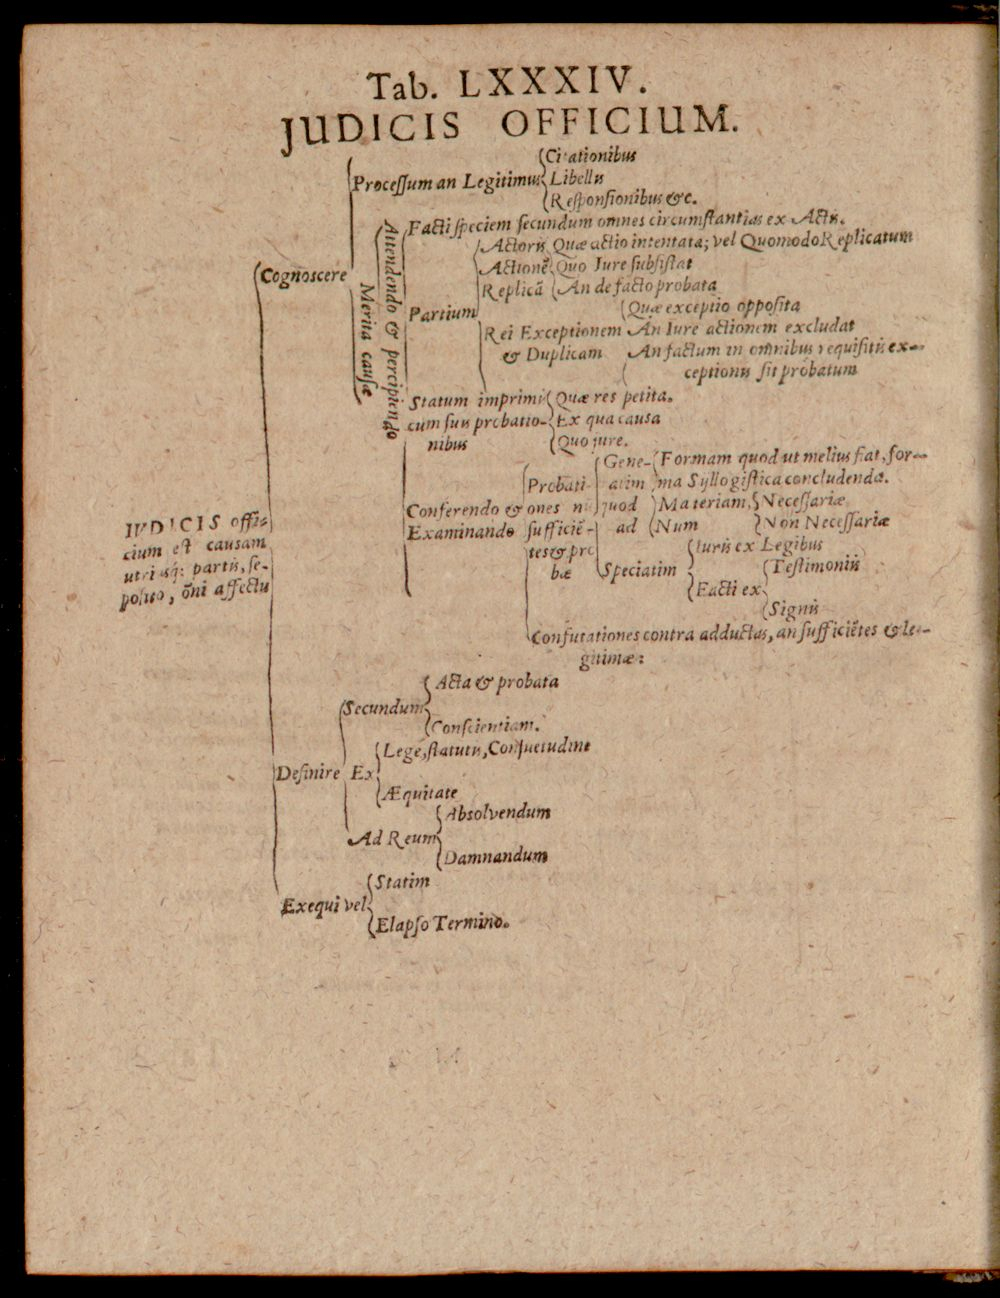 Tab. LXXXIV.
JUDICIS OFFICIUM.
Citationibus
Processum an Legitimus Libellis
Responsionibus &c.
Facti speciem secundum omnes circumstantias ex Actis.
Actoris Quæ actio intentata; vel Quomodo Replicatum
Cognoscere
Actionē Quo Jure subsistat
Replicā An de facto probata
Attendendo & percipiendo
Merita causæ
Partium
Quæ exceptio opposita
Rei Exceptionem An Iure actionem excludat
& Duplicam An factum in omnibus requisitis ex-
ceptionis sit probatum
Statum imprimis Quæ res petita.
cum suis probatio- Ex qua causa
nibus Quo jure.
Gene- Formam quod ut melius fiat, for-
Probati- atim ma Syllogistica concludenda.
Conferendo & ones quod Materiam, Necessariæ
Examinando sufficiē- ad Num Non Necessariæ
tes & pro Iuris ex Legibus
bæ Speciatim Testimoniis
Facti ex
Signis
Confutationes contra adductas, an sufficiētes & le-
gitimæ:
IVDICIS offi-
cium est causam
utriusq; partis, se-
posito, ōni affectu
Acta & probata
Secundum
Conscientiam.
Lege, statutis, Consuetudine
Definire Ex
Æquitate
Absolvendum
Ad Reum
Damnandum
Statim
Exequi vel
Elapso Termino.